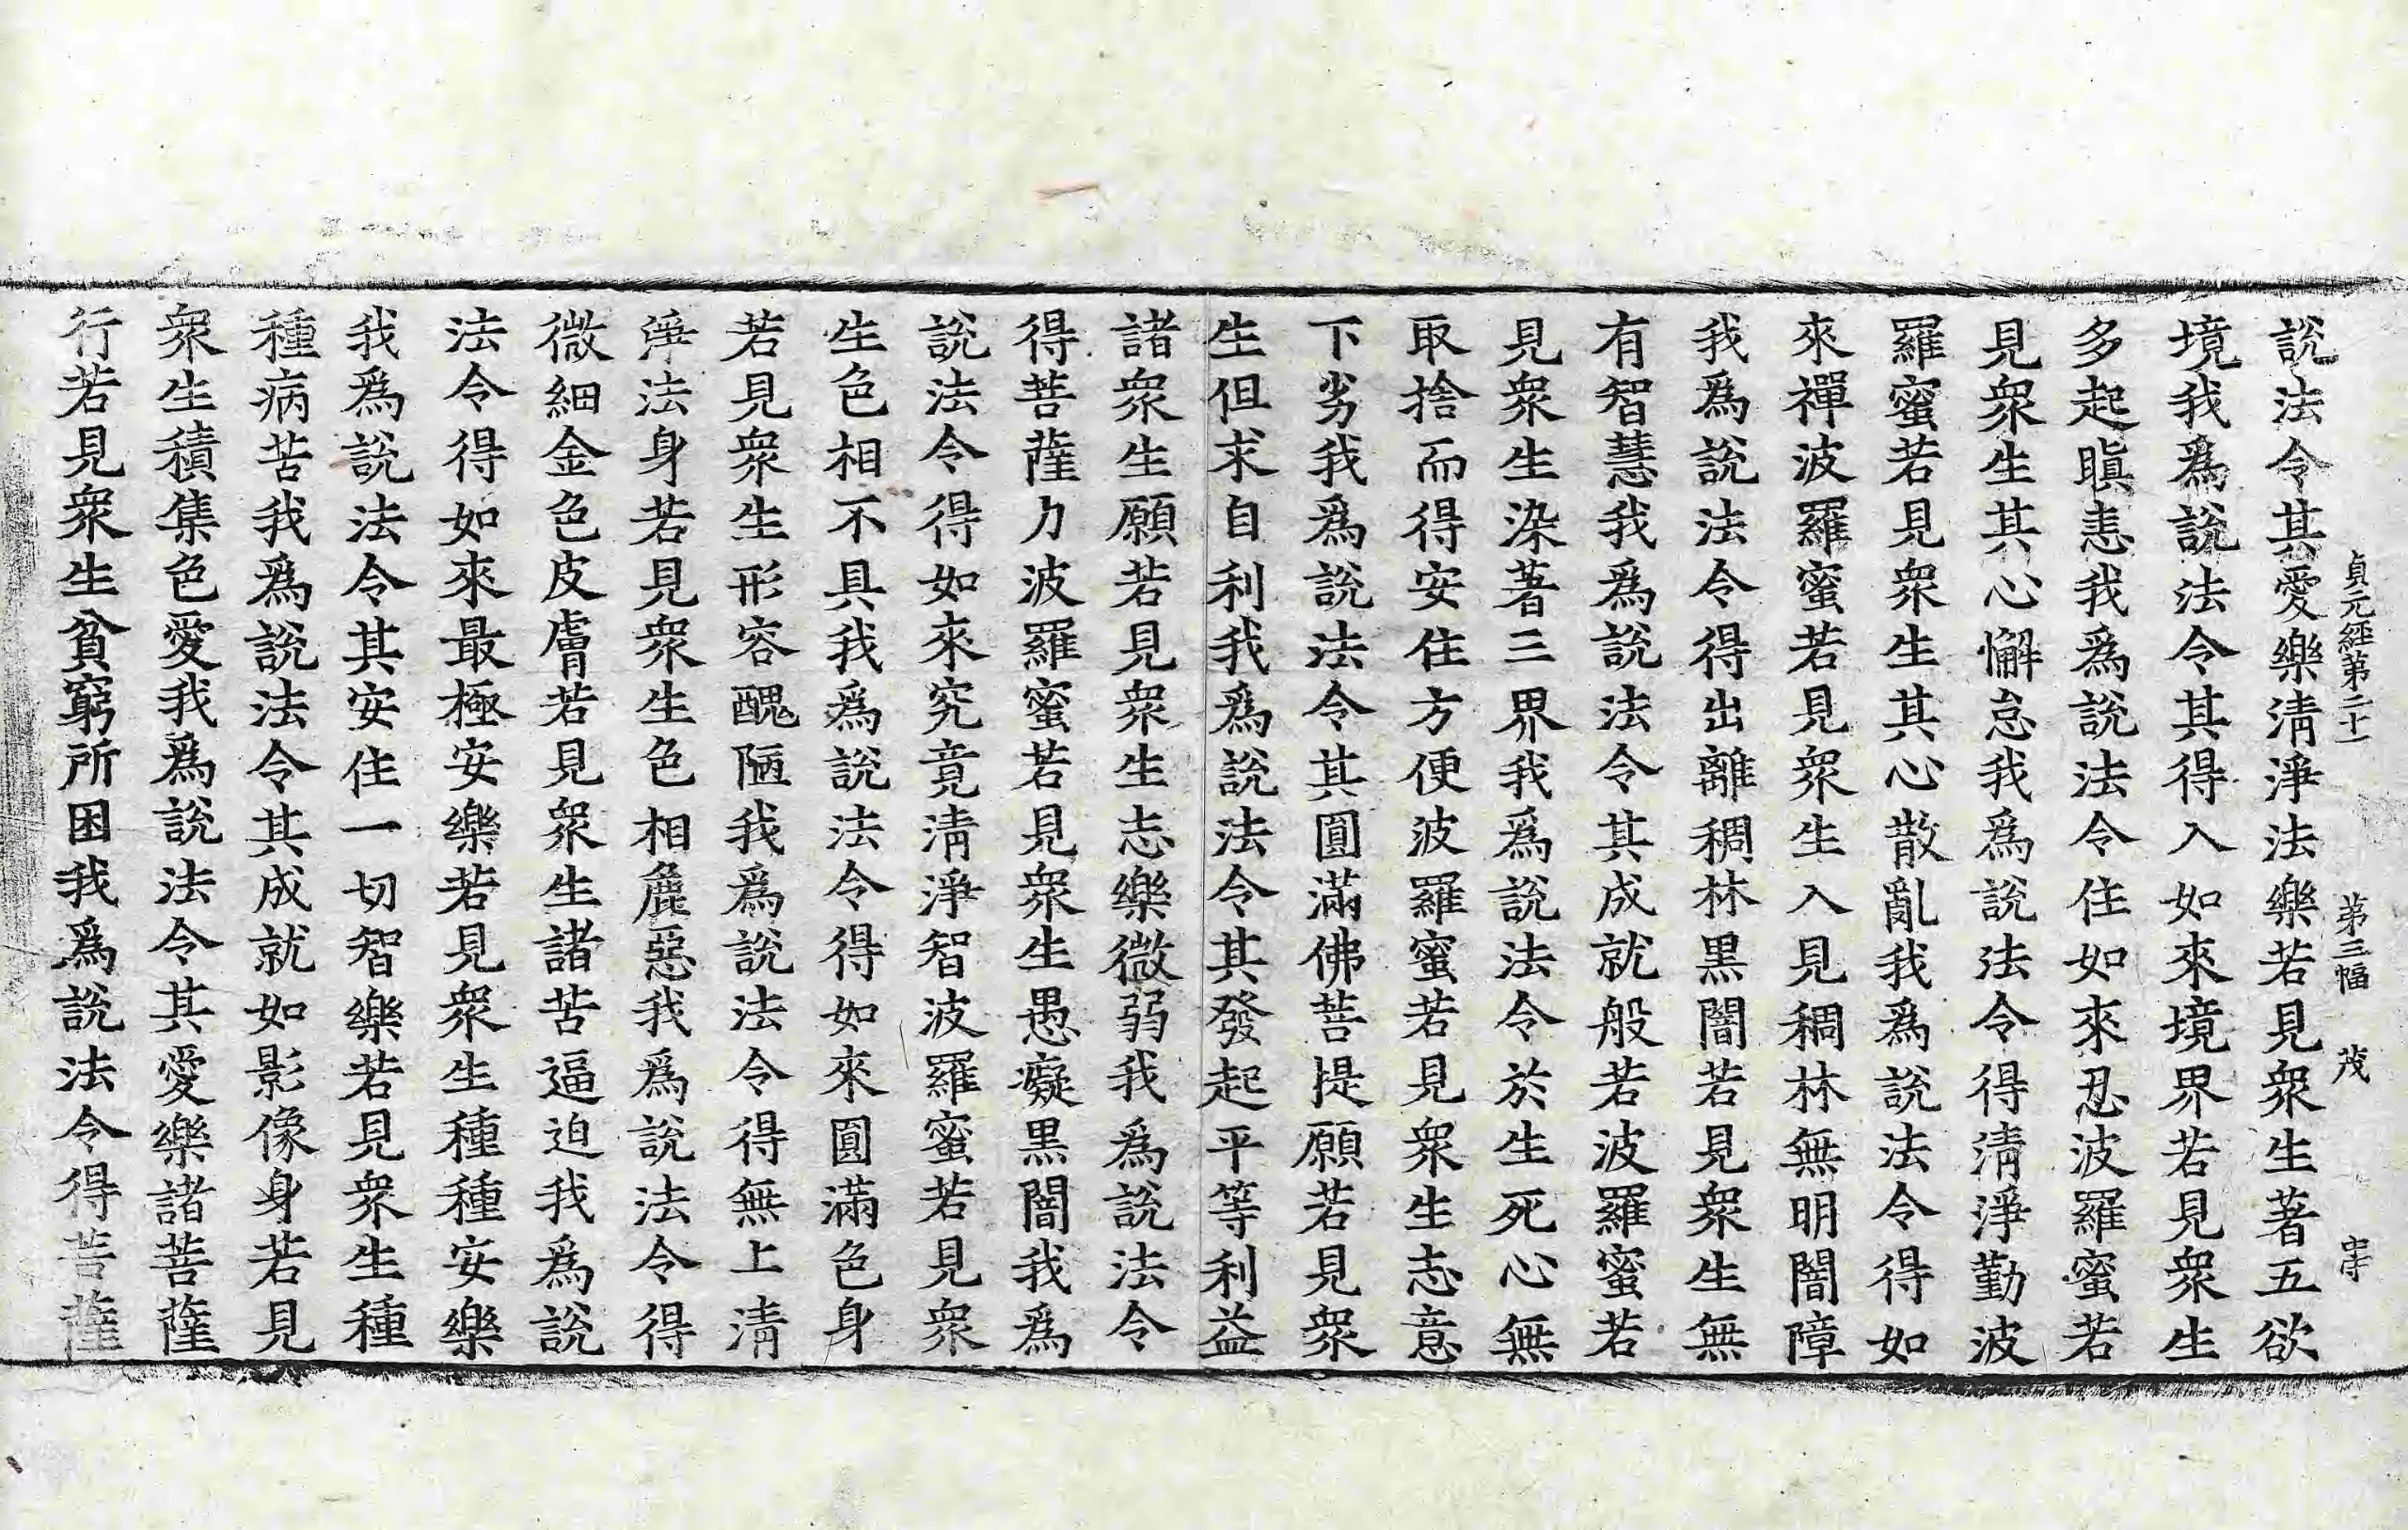 貞元經第二十一 第三幅 茂 字
說法令其愛樂清淨法樂若見衆生著五欲
境我爲說法令其得入如來境界若見衆生
多起瞋恚我爲說法令住如來忍波羅蜜若
見衆生其心懈怠我爲說法令得清淨勤波
羅蜜若見衆生其心散亂我爲說法令得如
來禪波羅蜜若見衆生入見稠林無明闇障
我爲說法令得出離稠林黒闇若見衆生無
有智慧我爲說法令其成就般若波羅蜜若
見衆生染著三界我爲說法令於生死心無
取捨而得安住方便波羅蜜若見衆生志意
下劣我爲說法令其圓滿佛菩提願若見衆
生但求自利我爲說法令其發起平等利益
諸衆生願若見衆生志樂微弱我爲說法令
得菩薩力波羅蜜若見衆生愚癡黒闇我爲
說法令得如來究竟清淨智波羅蜜若見衆
生色相不具我爲說法令得如來圓滿色身
若見衆生形容醜陋我爲說法令得無上清
淨法身若見衆生色相麁惡我爲說法令得
微細金色皮膚若見衆生諸苦逼迫我爲說
法令得如來最極安樂若見衆生種種安樂
我爲說法令其安住一切智樂若見衆生種
種病苦我爲說法令其成就如影像身若見
衆生積集色愛我爲說法令其愛樂諸菩薩
行若見衆生貧窮所困我爲說法令得菩薩